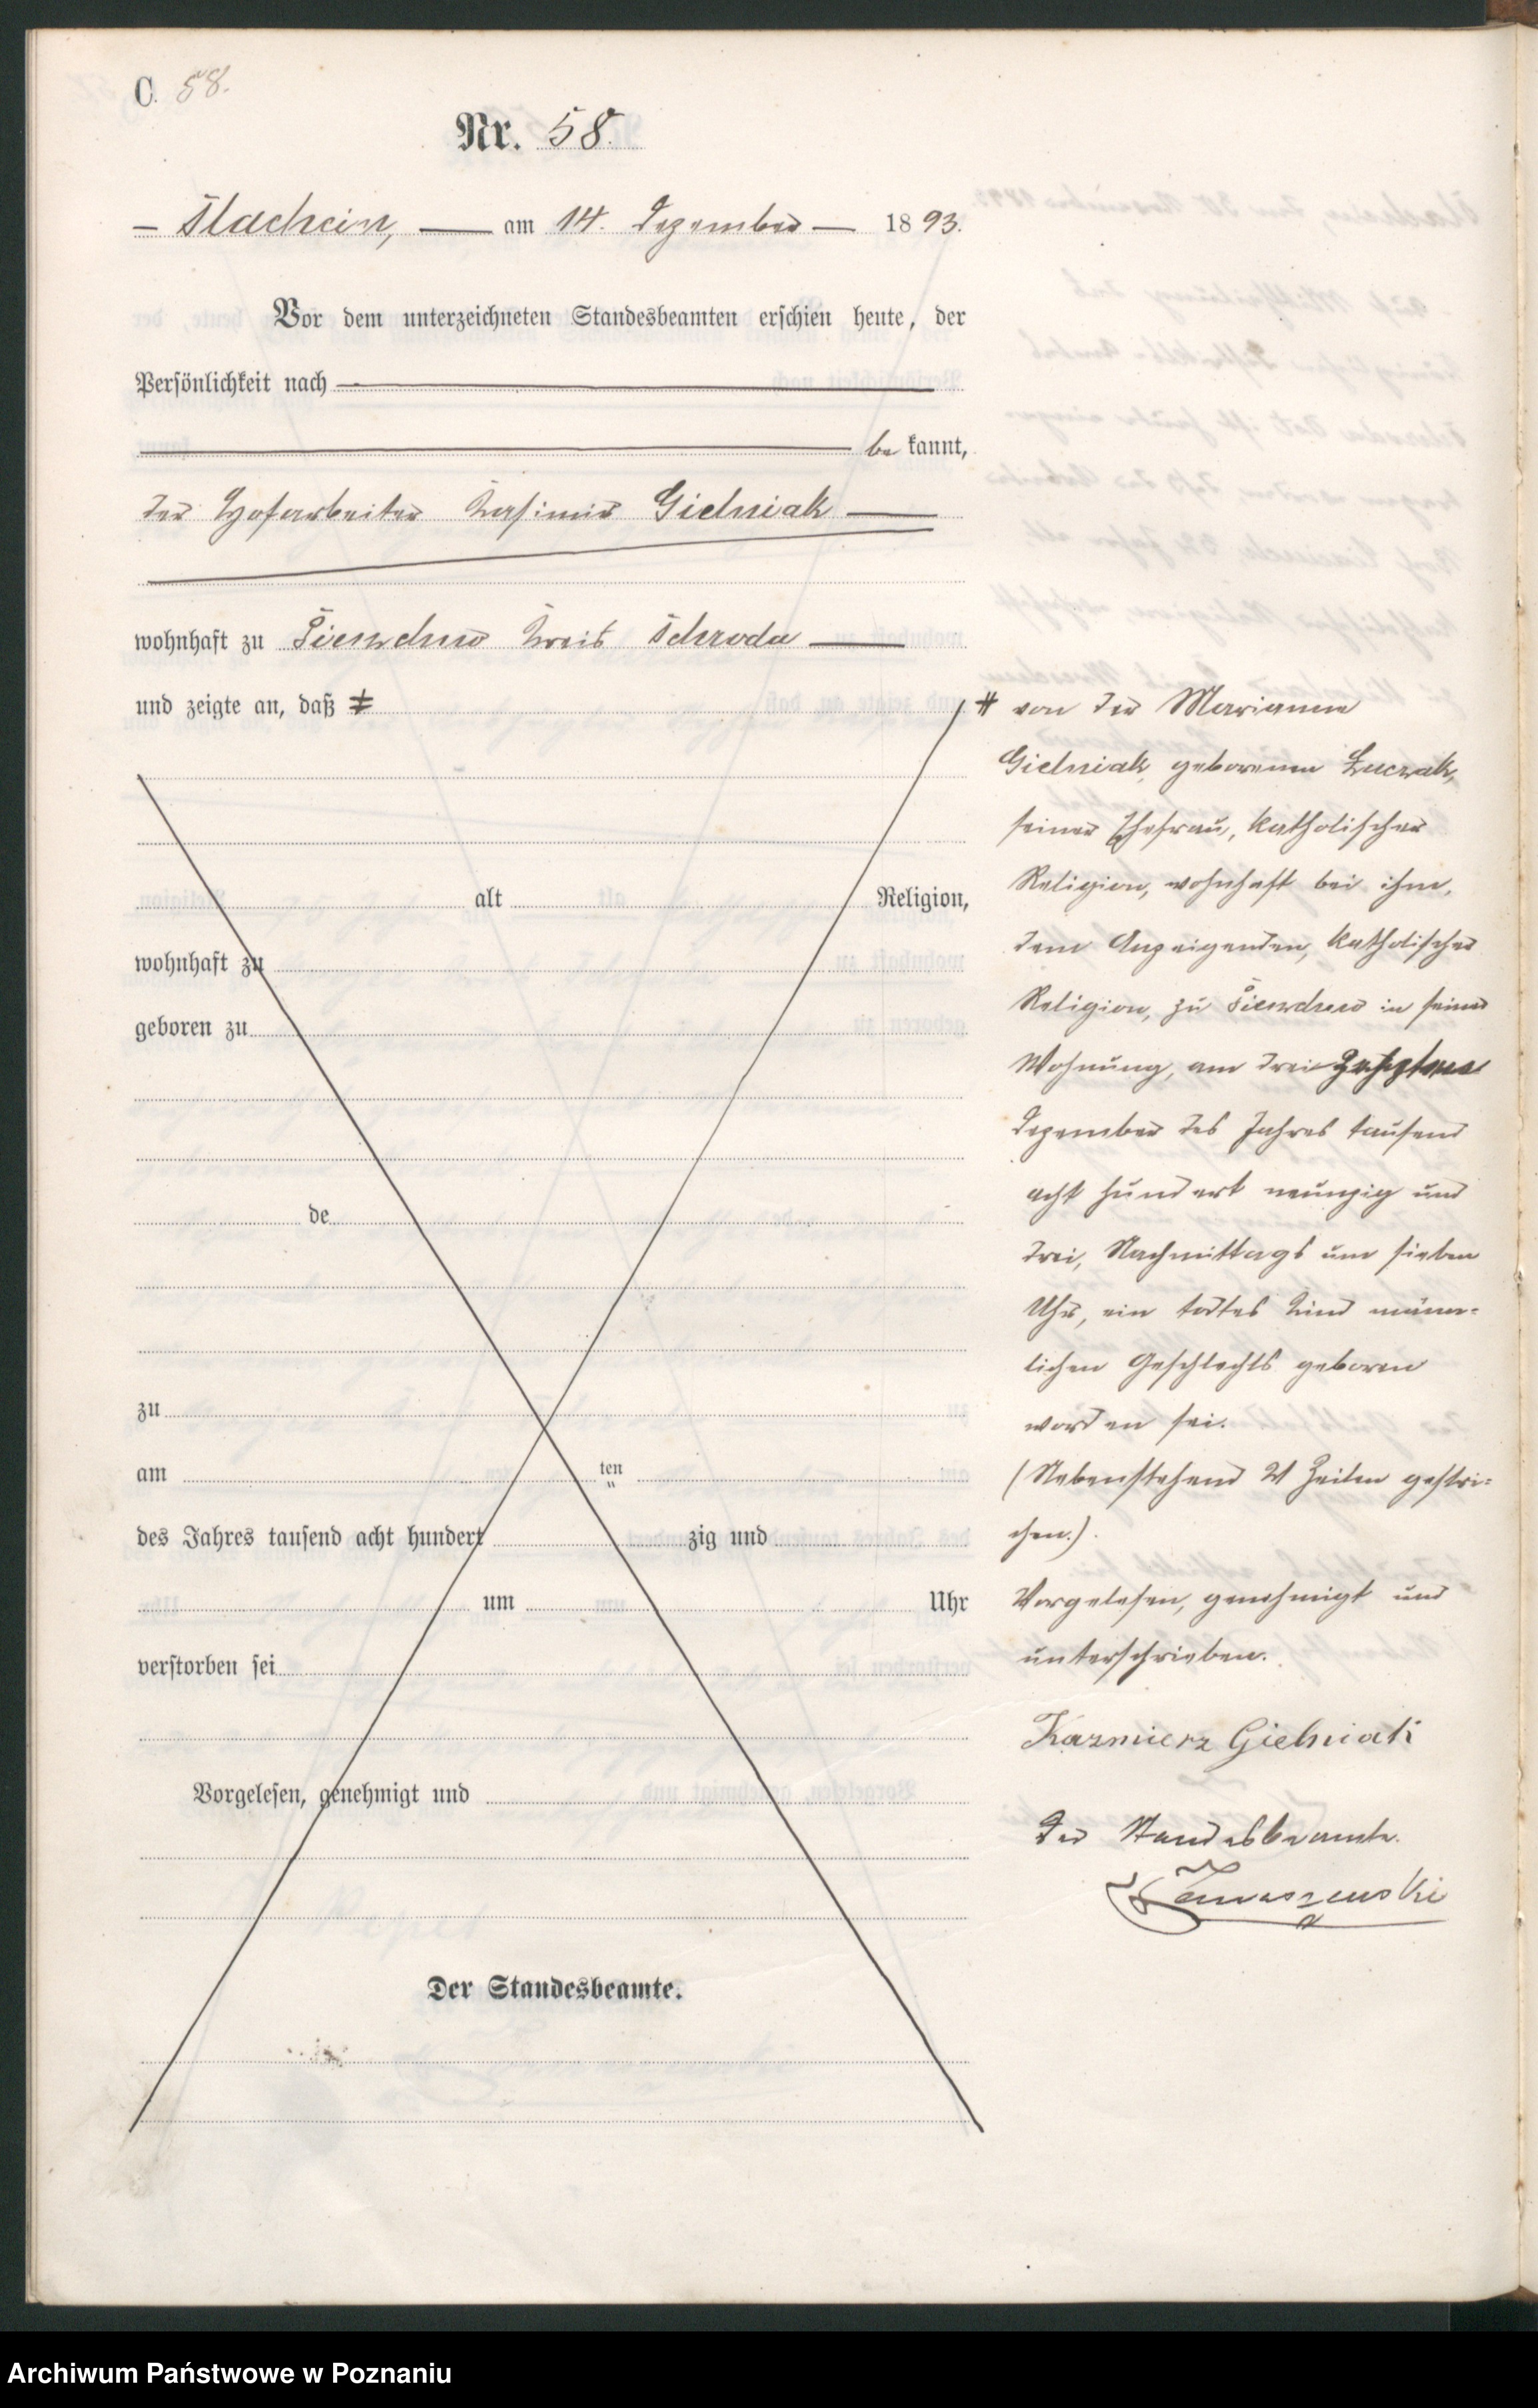 C. 58.
Nr. 58.
— Stachcin, — am 14. Dezember — 1893.
Vor dem unterzeichneten Standesbeamten erschien heute, der
Persönlichkeit nach
be kannt,
der Hofarbeiter Kasimir Gielniak —
wohnhaft zu Pierzchno Kreis Schroda —
und zeigte an, daß ‡
alt Religion,
wohnhaft zu
geboren zu
de
zu
am ten
des Jahres tausend acht hundert zig und
um Uhr
verstorben sei
Vorgelesen, genehmigt und
Der Standesbeamte.
‡ von der Marianna
Gielniak geborenen Łuczak,
seiner Ehefrau, katholischer
Religion, wohnhaft bei ihm,
dem Anzeigenden, katholischer
Religion, zu in seiner
Wohnung, am dreizehnten
Dezember des Jahres tausend
acht hundert neunzig und
drei, Nachmittags um sieben
Uhr, ein todtes Kind männ-
lichen Geschlechts geboren
worden sei.
(Nebenstehend 21 Zeilen gestri-
chen.).
Vorgelesen, genehmigt und
unterschrieben.
Kazmierz Gielniak
Der Standesbeamte.
Tomaszewski
Archiwum Państwowe w Poznaniu